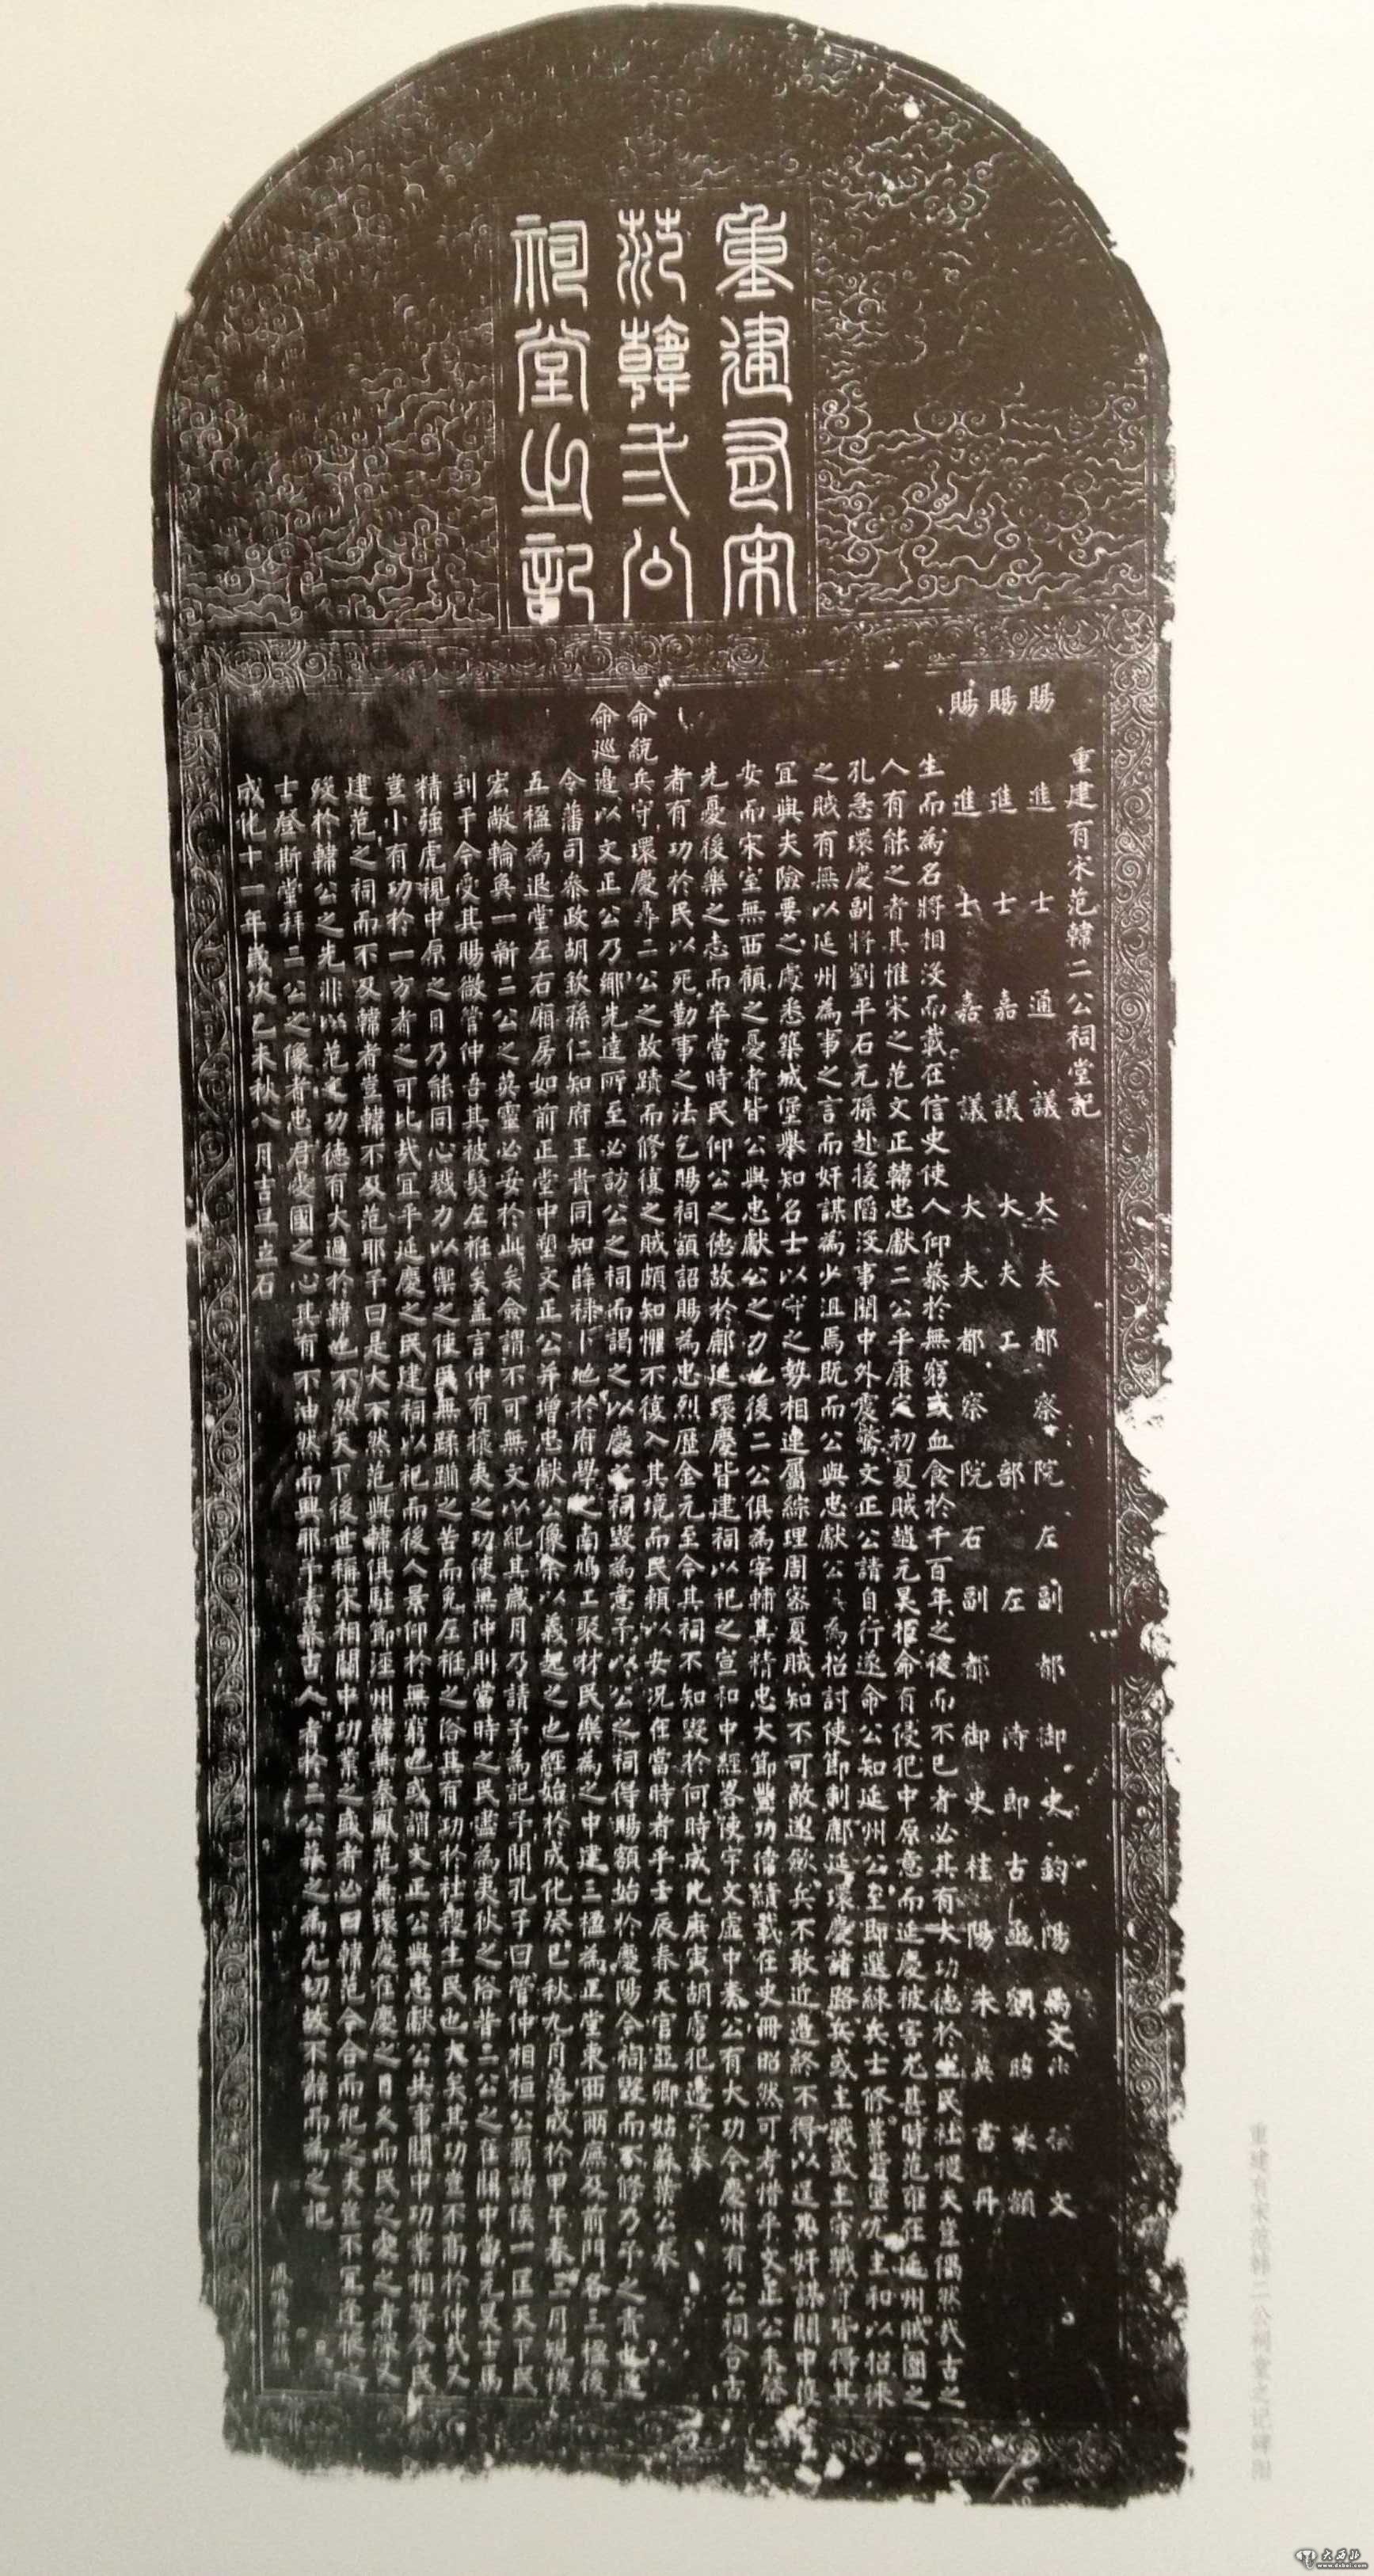 重建有宋
范韓弍公
祠堂之記
重建有宋范韓二公祠堂記
賜進士通議大夫都察院左副都御史鈞陽馬文升撰文
賜進士嘉議大夫工部左侍郎古幽劉昭篆額
賜進士嘉議大夫都察院右副都御史桂陽朱英書丹
生而為名將相沒而載在信史使人仰慕於無窮或血食於千百年之後而不已者必其有大功德於生民社稷夫豈偶然哉古之
人有能之者其惟宋之范文正韓忠獻二公乎康定初夏賊趙元昊拒命有侵犯中原意而延慶被害尤甚時范雍在延州賊圍之
孔急環慶副將劉平石元孫赴援陷沒事聞中外震驚文正公請自行遂命公知延州公至即選練兵士修葺營堡尤主和以招徠
之賊有無以延州為事之言而奸謀為少沮焉既而公與忠獻公為招討使節制鄜延環慶諸路兵或主戰或主守戰守皆得其
宜與夫險要之處悉築城堡舉知名士以守之勢相連屬綜理周密夏賊知不可敵遂歛兵不敢近邊終不得以逞其奸謀關中復
安而宋室無西顧之憂者皆公與忠獻公之力也後二公俱為宰輔其精忠大節豐功偉績載在史冊昭然可考惜乎文正公未罄
先憂後樂之志而卒當時民仰公之德故於鄜延環慶皆建祠以祀之宣和中經畧使宇文虛中奏公有大功今慶州有公祠合古
者有功於民以死勤事之法乞賜祠額詔賜為忠烈歷金元至今其祠不知毀於何時成化庚寅胡虜犯邊予奉
命統兵守環慶尋二公之故蹟而修復之賊頗知懼不復入其境而民賴以安況在當時者乎壬辰春天官亞卿姑蘇葉公奉
命巡邊以文正公乃鄉先達所至必訪公之祠而謁之以慶之祠毀為意予以公之祠得賜額始於慶陽今祠毀而不修乃予之責也遂
令藩司參政胡欽孫仁知府王貴同知薛祿卜地於府學之南鳩工聚材民樂為之中建三楹為正堂東西兩廡及前門各三楹後
五楹為退堂左右廂房如前正堂中塑文正公并增忠獻公像余以義起之也經始於成化癸巳秋九月落成於甲午春三月規模
宏敞輪奐一新二公之英靈必妥於此矣僉謂不可無文以紀其歲月乃請予為記予聞孔子曰管仲相桓公霸諸侯一匡天下民
到于今受其賜微管仲吾其被髮左衽矣蓋言仲有攘夷之功使無仲則當時之民儘為夷狄之俗昔二公之在關中當元昊士馬
精強虎視中原之日乃能同心戮力以禦之使民無蹂躪之苦而免左衽之俗其有功於社稷生民也大矣其功豈不高於仲哉又
豈小有功於一方者之可比哉宜乎延慶之民建祠以祀而後人景仰於無窮也或謂文正公與忠獻公其事關中功業相等今民
建范之祠而不及韓者豈韓不及范耶予曰是大不然范與韓俱駐節涇州韓兼秦鳳范兼環慶在慶之日久而民之愛之者深又
歿於韓公之先非以范之功德有大過於韓也不然天下後世稱宋相關中功業之盛者必曰韓范今合而祀之夫豈不宜後
士登斯堂拜二公之像者忠君憂國之心其有不油然而興耶予素慕古人者於二公慕之為尤切故不辭而為之記
成化十一年歲次乙未秋八月吉旦立石
重建有宋范韩二公祠堂之记碑
大西北
www.dxbei.com